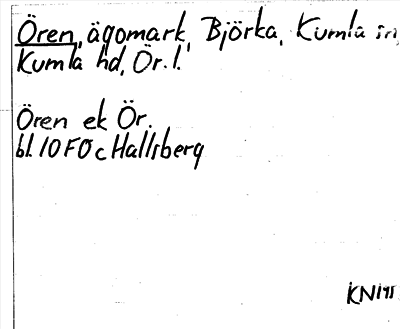 Ören, ägomark, Björka, Kumla sn,
Kumla hd, Ör. l.
Ören ek Ör.
bl. 10 F 0 c Hallsberg